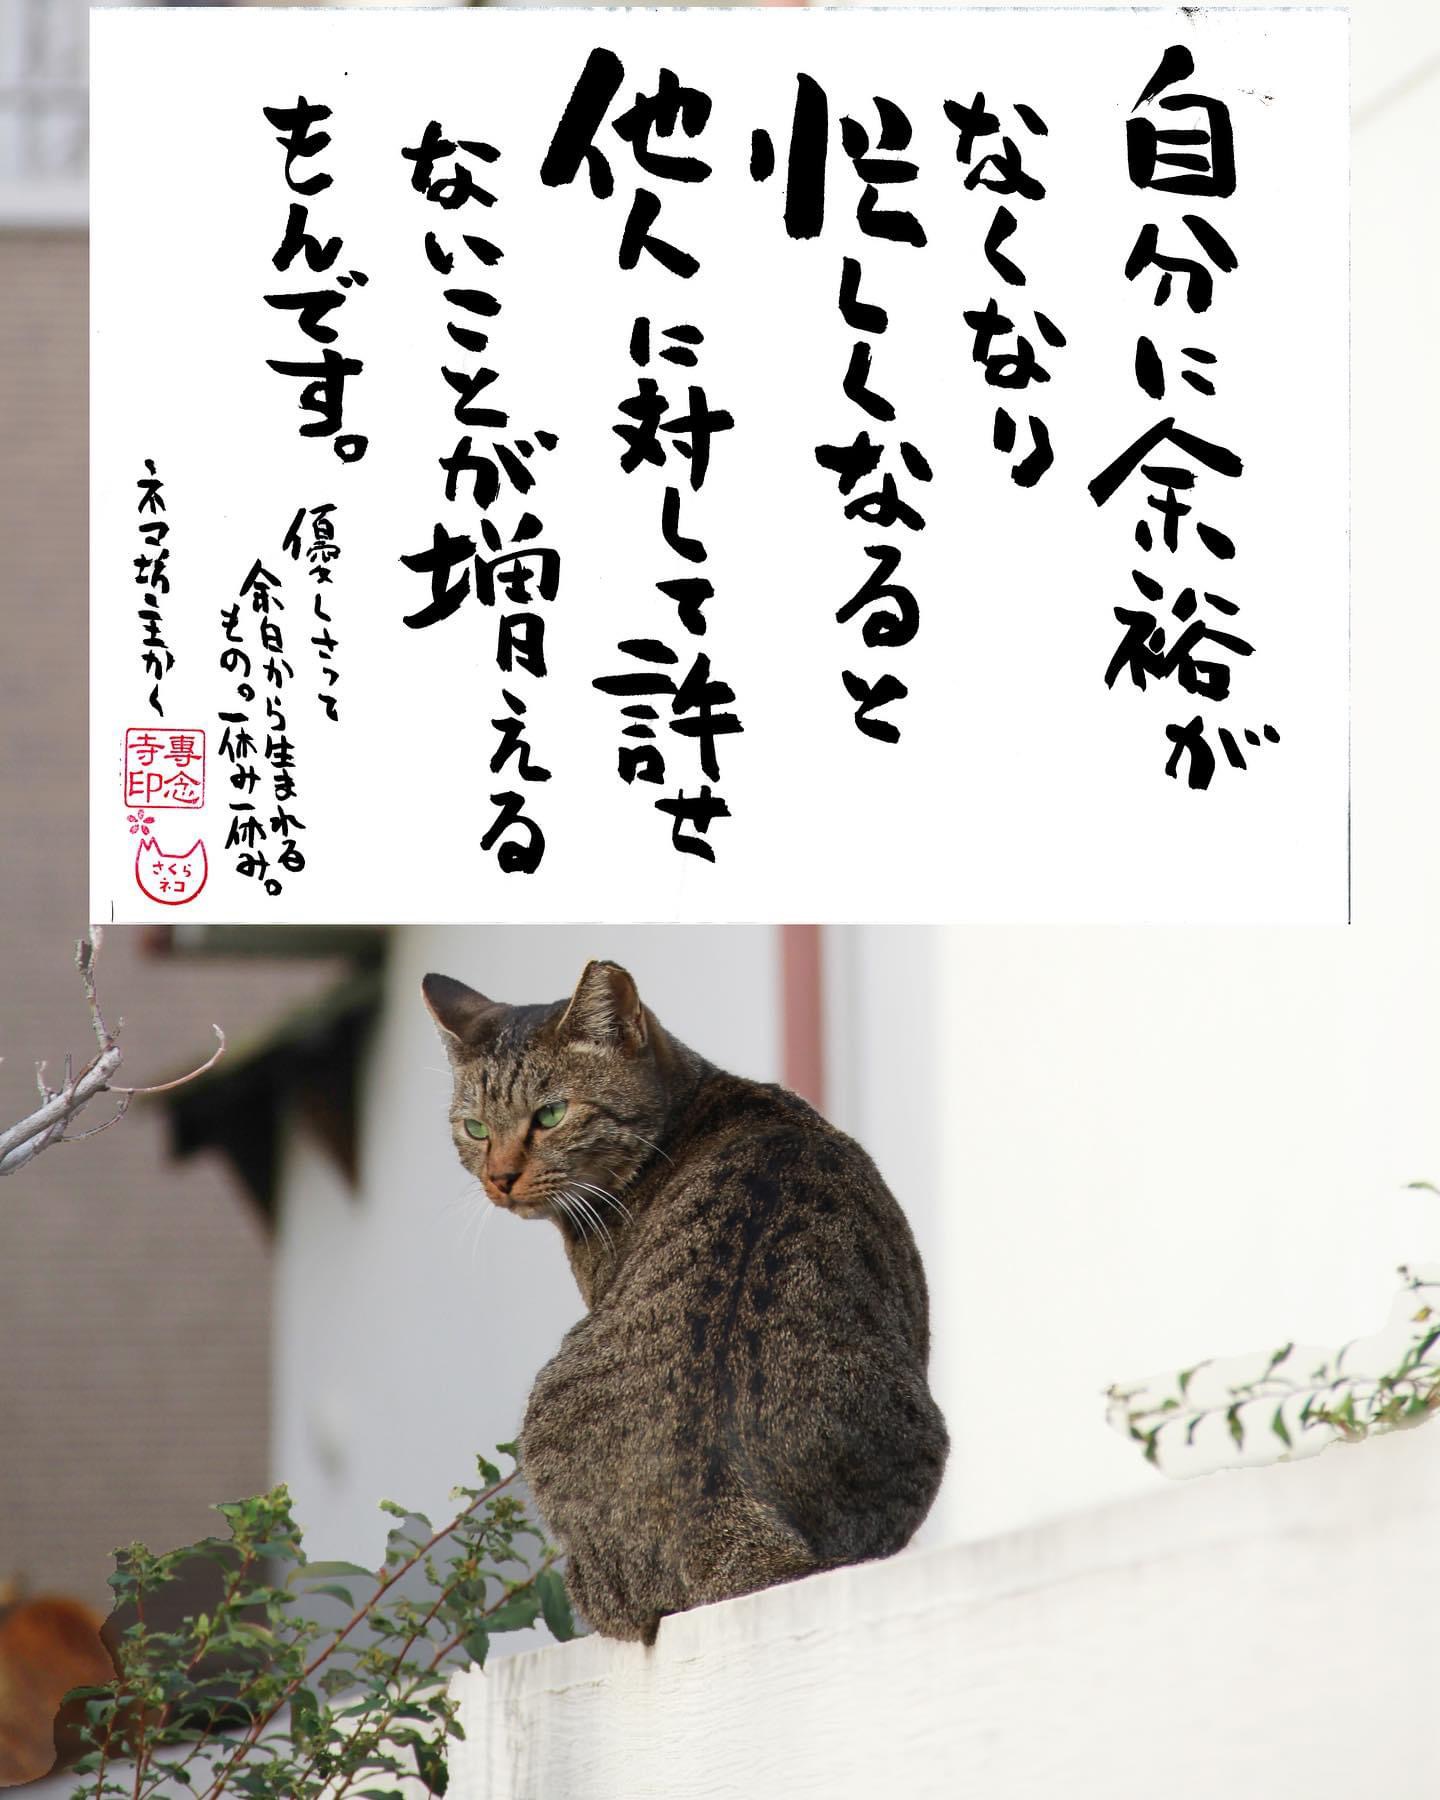 自分に余裕が
なくなり
忙しくなると
他人に対して許せ
ないことが増える
もんです。
優しさって
余白から生まれる
もの。一休み一休み。
ネコ坊主かく
專念
寺印
さくら
ネコ